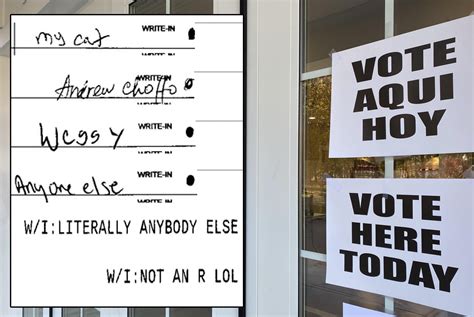 WRITE-IN
my cat
WRITE-IN
Andrew Choffo
WRITE-IN
WRITE-IN
Anyone else
W/I:LITERALLY ANYBODY ELSE
W/I:NOT AN R LOL
VOTE
AQUI
HOY
VOTE
HERE
TODAY